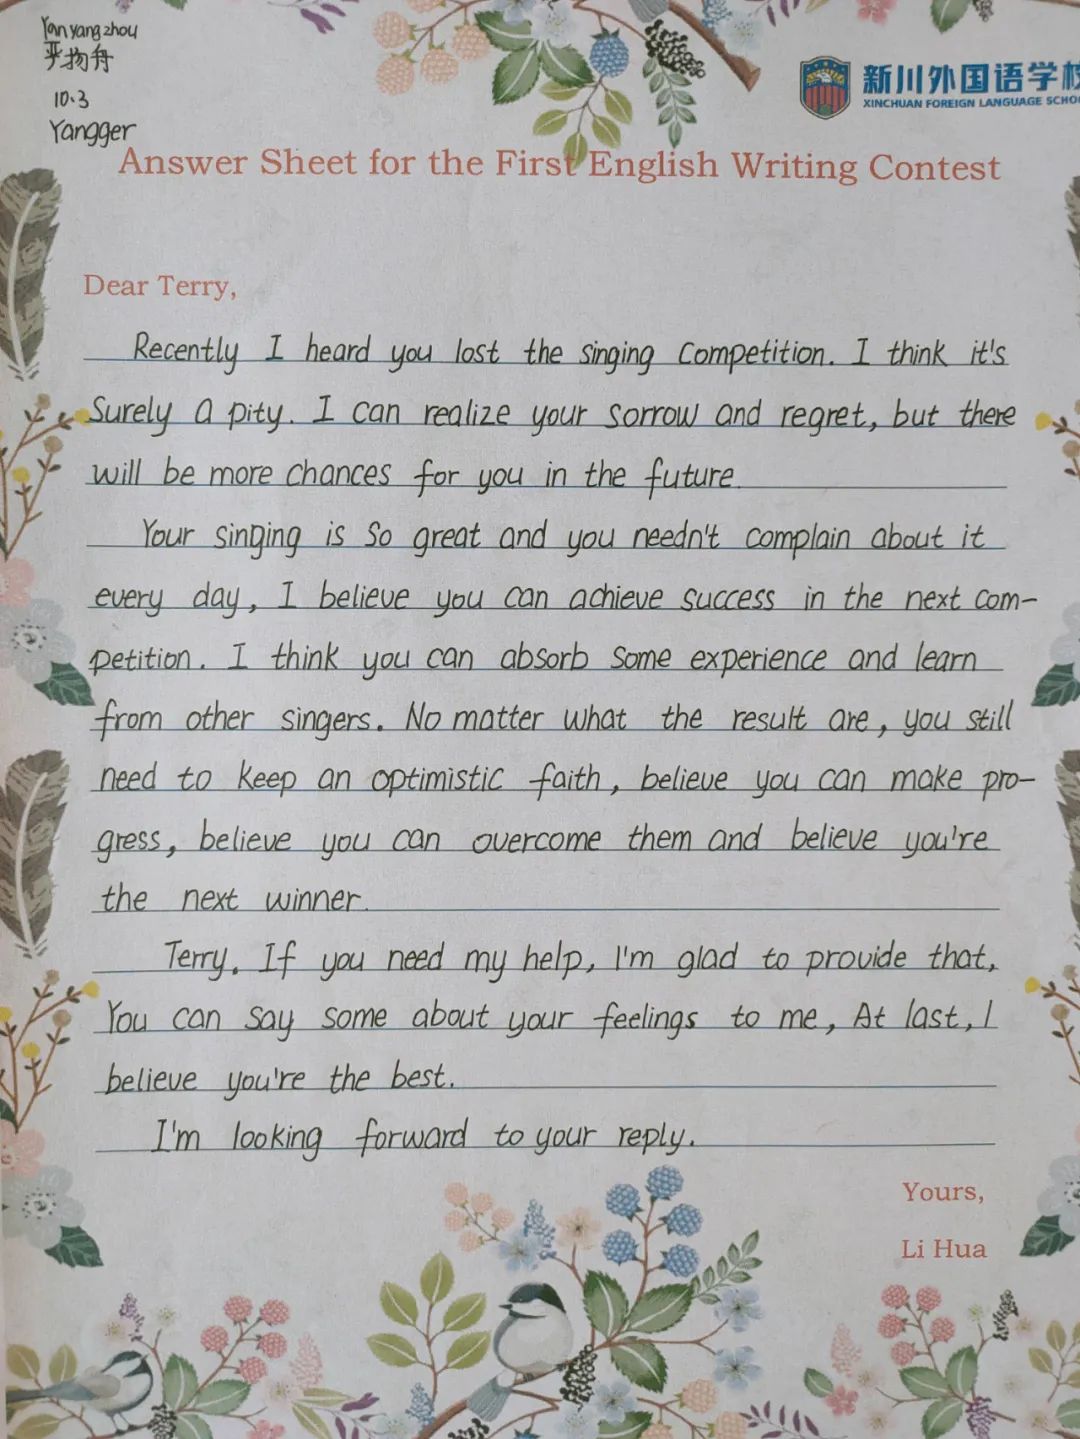 Yan yang zhou
严扬舟
10.3
Yangger
新川外国语学校
XINCHUAN FOREIGN LANGUAGE SCHO
Answer Sheet for the First English Writing Contest
Dear Terry,
Recently I heard you lost the singing Competition. I think it's
Surely a pity. I can realize your sorrow and regret, but there
will be more chances for you in the future.
Your singing is So great and you needn't complain about it
every day, I believe you can achieve success in the next com-
petition. I think you can absorb some experience and learn
from other singers. No matter what the result are, you still
need to keep an optimistic faith, believe you can make pro-
gress, believe you can overcome them and believe you're
the next winner.
Terry. If you need my help, I'm glad to provide that,
You can say some about your feelings to me, At last, I
believe you're the best.
I'm looking forward to your reply.
Yours,
Li Hua